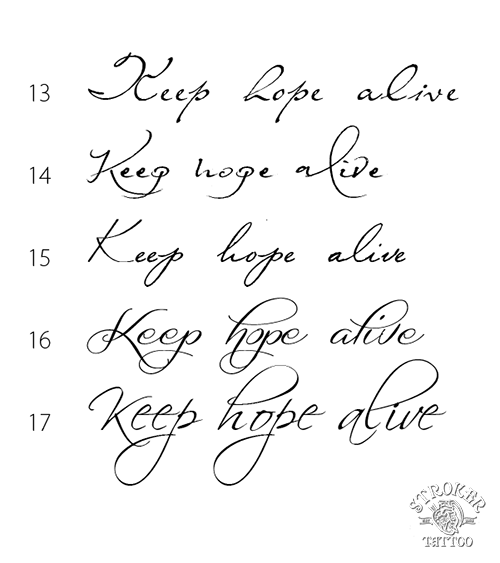 13 Keep hope alive
14 Keep hope alive
15 Keep hope alive
16 Keep hope alive
17 Keep hope alive
STROKER
TATTOO